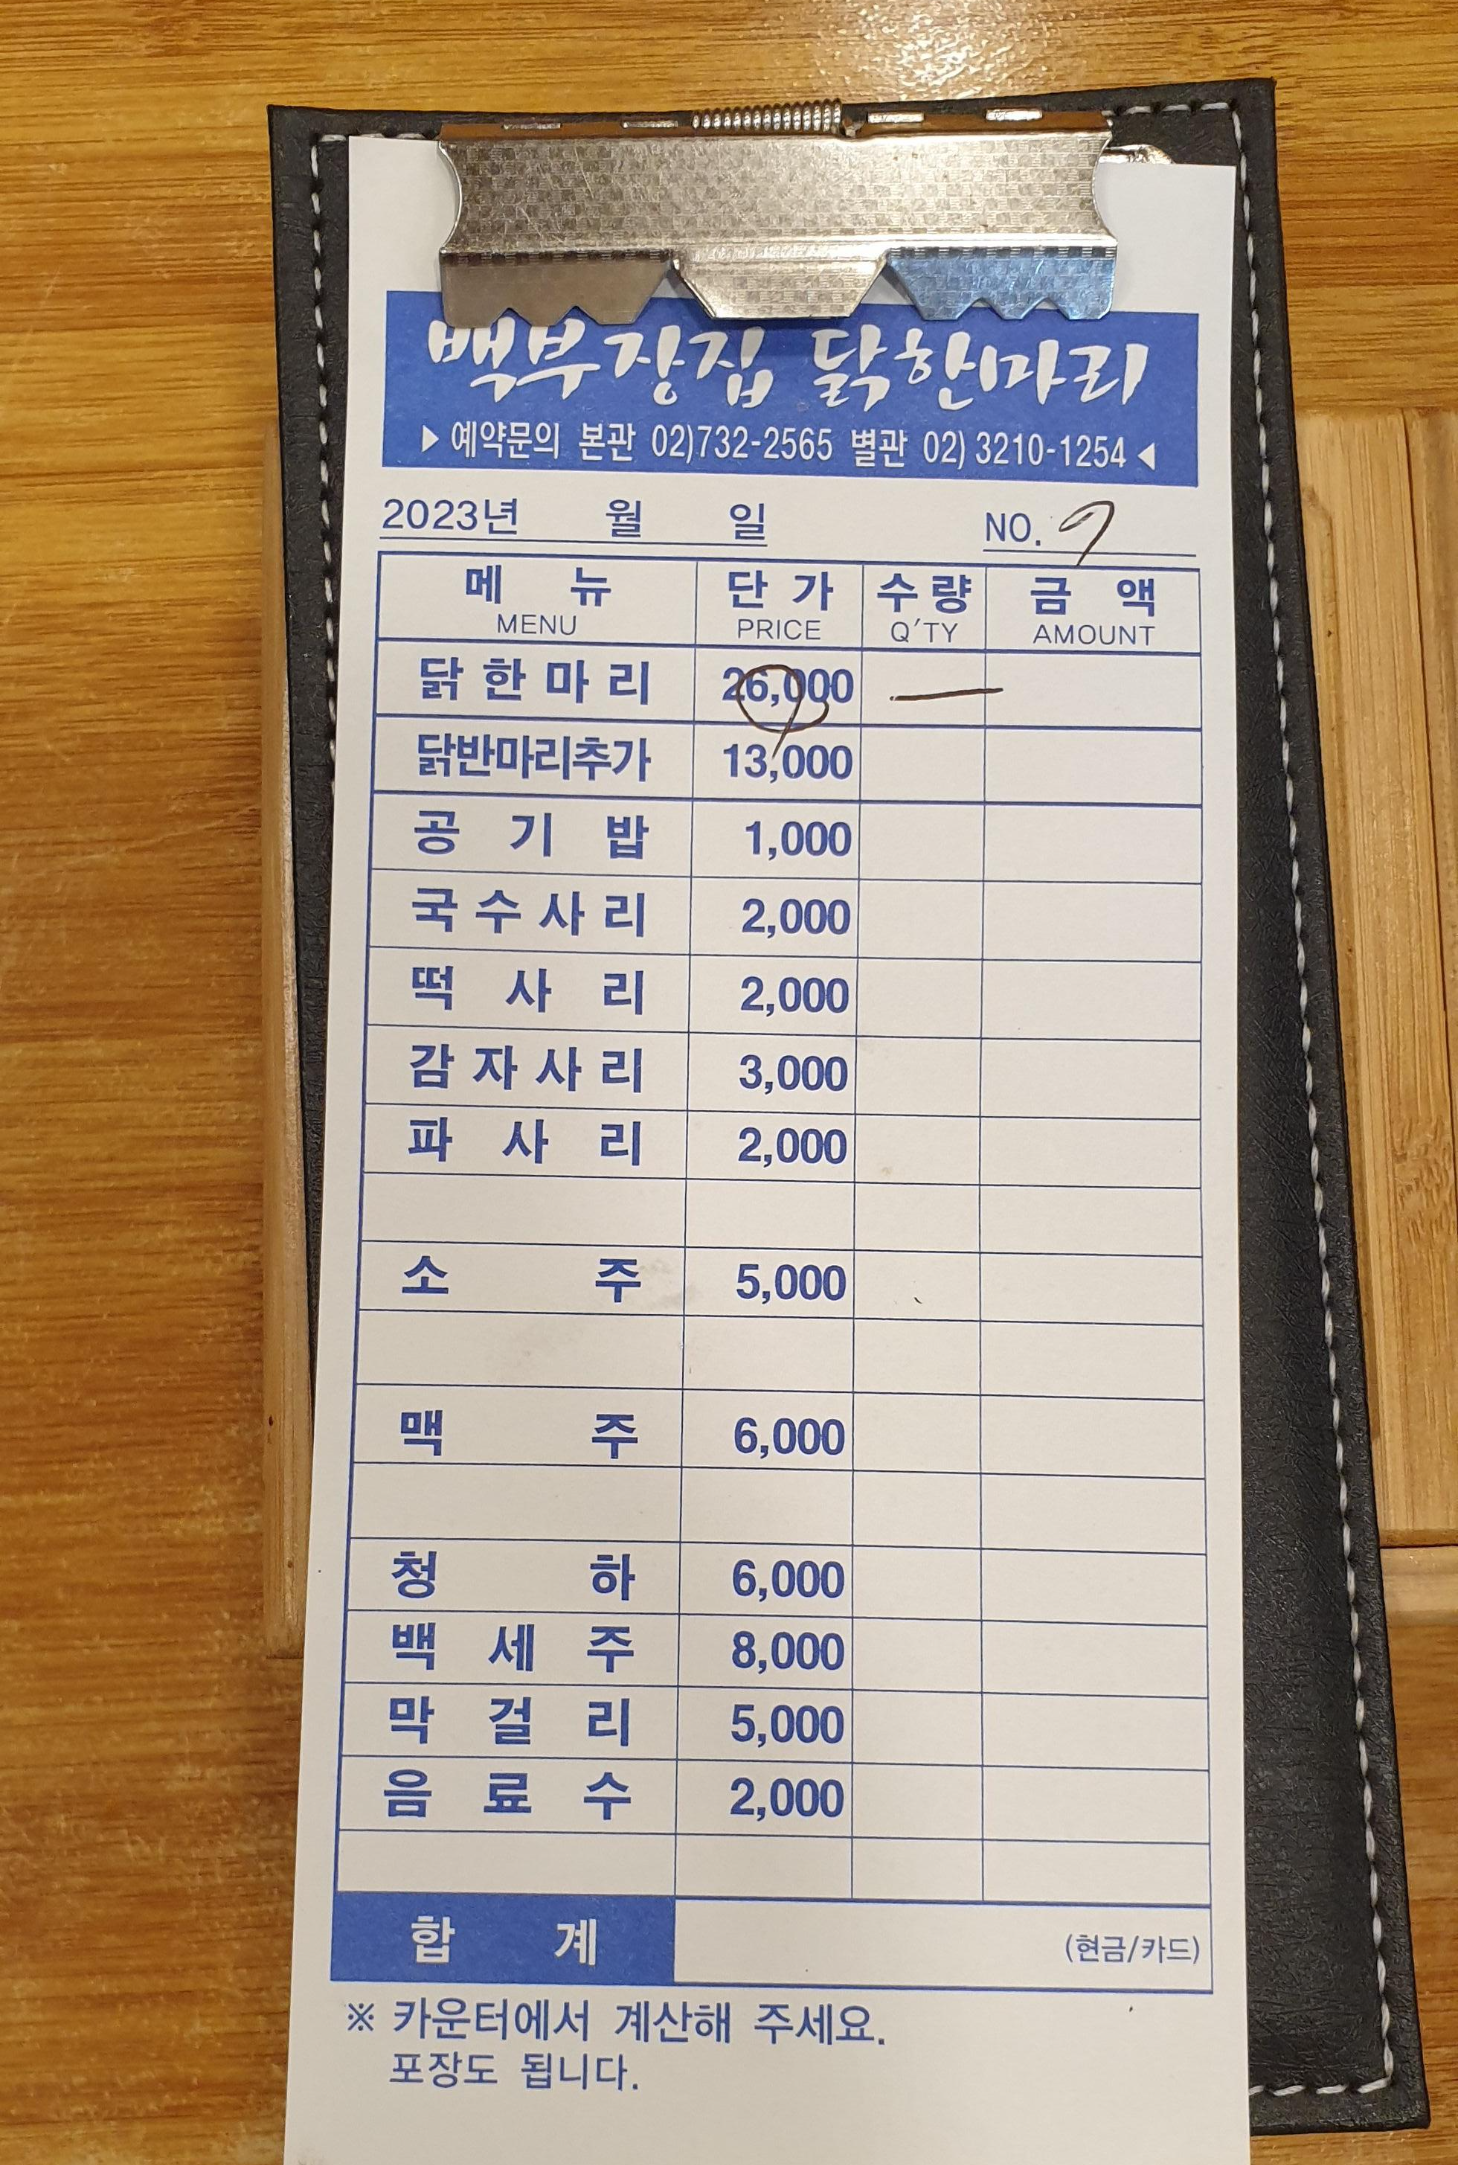 백부장집 닭한마리
▶ 예약문의 본관 02)732-2565 별관 02) 3210-1254 ◀
2023년 월 일 NO. 9
메 뉴 단 가 수량 금 액
MENU PRICE Q'TY AMOUNT
닭한마리 26,000 —
닭반마리추가 13,000
공 기 밥 1,000
국수사리 2,000
떡 사 리 2,000
감자사리 3,000
파 사 리 2,000
소 주 5,000
맥 주 6,000
청 하 6,000
백 세 주 8,000
막 걸 리 5,000
음 료 수 2,000
합 계 (현금/카드)
※ 카운터에서 계산해 주세요.
포장도 됩니다.